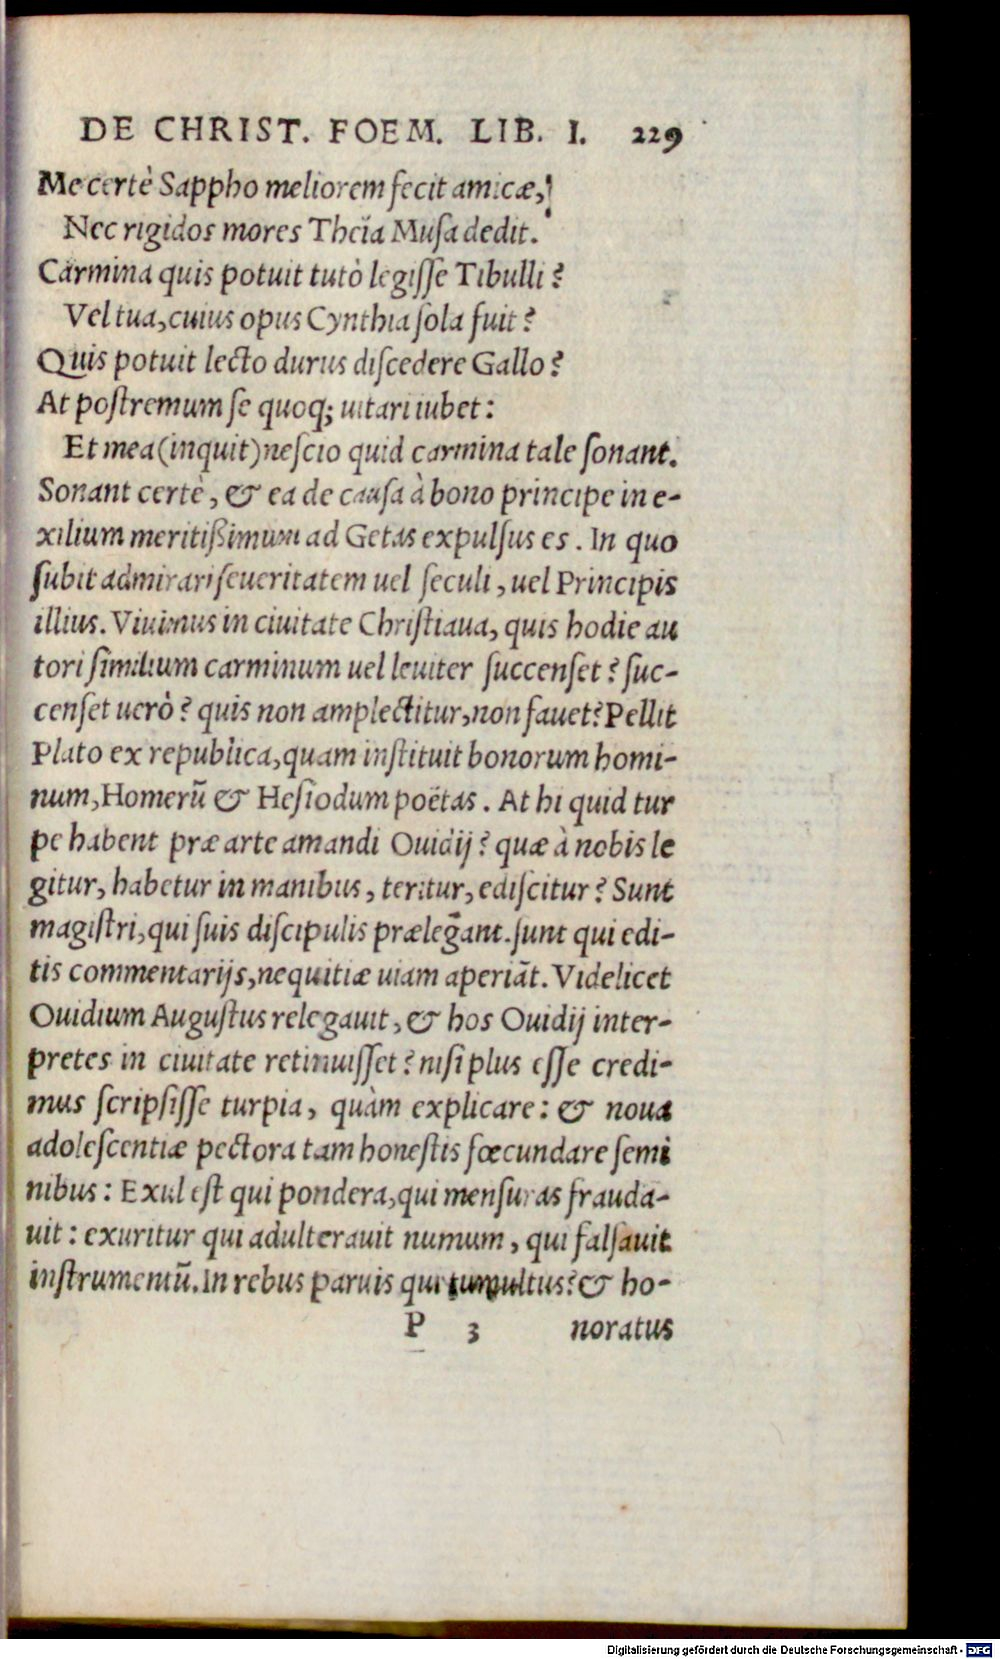 DE CHRIST. FOEM. LIB. I. 229
Me certè Sappho meliorem fecit amicæ,
Nec rigidos mores Theïa Musa dedit.
Carmina quis potuit tutò legisse Tibulli?
Vel tua, cuius opus Cynthia sola fuit?
Quis potuit lecto durus discedere Gallo?
At postremum se quoq; uitari iubet:
Et mea (inquit) nescio quid carmina tale sonant.
Sonant certè, & ea de causa à bono principe in e-
xilium meritißimum ad Getas expulsus es. In quo
subit admirari seueritatem uel seculi, uel Principis
illius. Viuimus in ciuitate Christiaua, quis hodie au
tori similium carminum uel leuiter succenset? suc-
censet uerò? quis non amplectitur, non fauet? Pellit
Plato ex republica, quam instituit bonorum homi-
num, Homerũ & Hesiodum poëtas. At hi quid tur
pe habent præ arte amandi Ouidij? quæ à nobis le
gitur, habetur in manibus, teritur, ediscitur? Sunt
magistri, qui suis discipulis prælegãnt. sunt qui edi-
tis commentarijs, nequitiæ uiam aperiãt. Videlicet
Ouidium Augustus relegauit, & hos Ouidij inter-
pretes in ciuitate retinuisset? nisi plus esse credi-
mus scripsisse turpia, quàm explicare: & noua
adolescentiæ pectora tam honestis fœcundare semi
nibus: Exul est qui pondera, qui mensuras frauda-
uit: exuritur qui adulterauit numum, qui falsauit
instrumentũ. In rebus paruis qui tumultus? & ho-
P 3 noratus
Digitalisierung gefördert durch die Deutsche Forschungsgemeinschaft - DFG